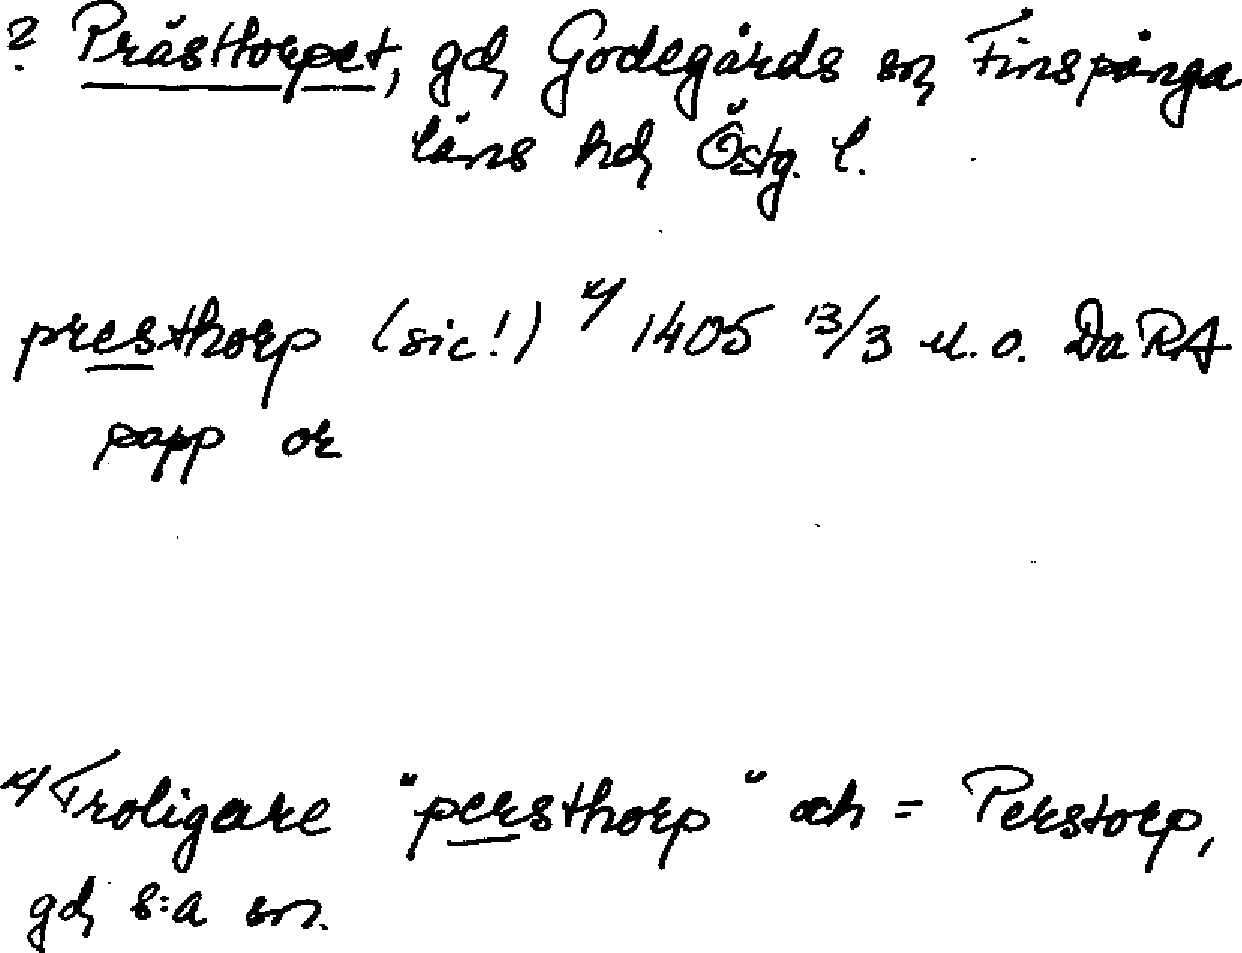 ? Prästtorpet, gd, Godegårds sn, Finspånga
läns hd, Östg. l.
presthorp (sic!) x/ 1405 13/3 u. o. Da RA
papp or
x/ Troligare "persthorp" och = Perstorp,
gd, s:a sn.